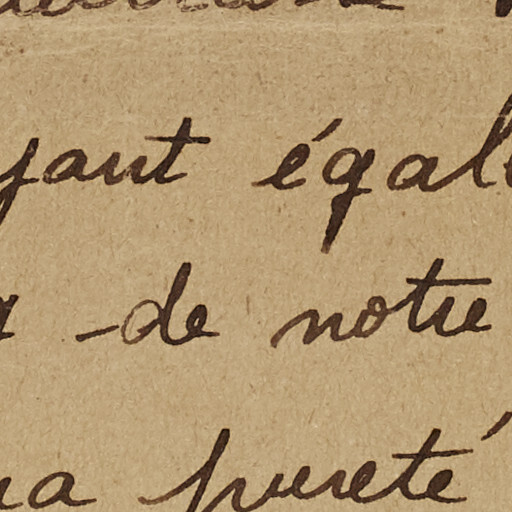 yant égal
-de notre
pureté